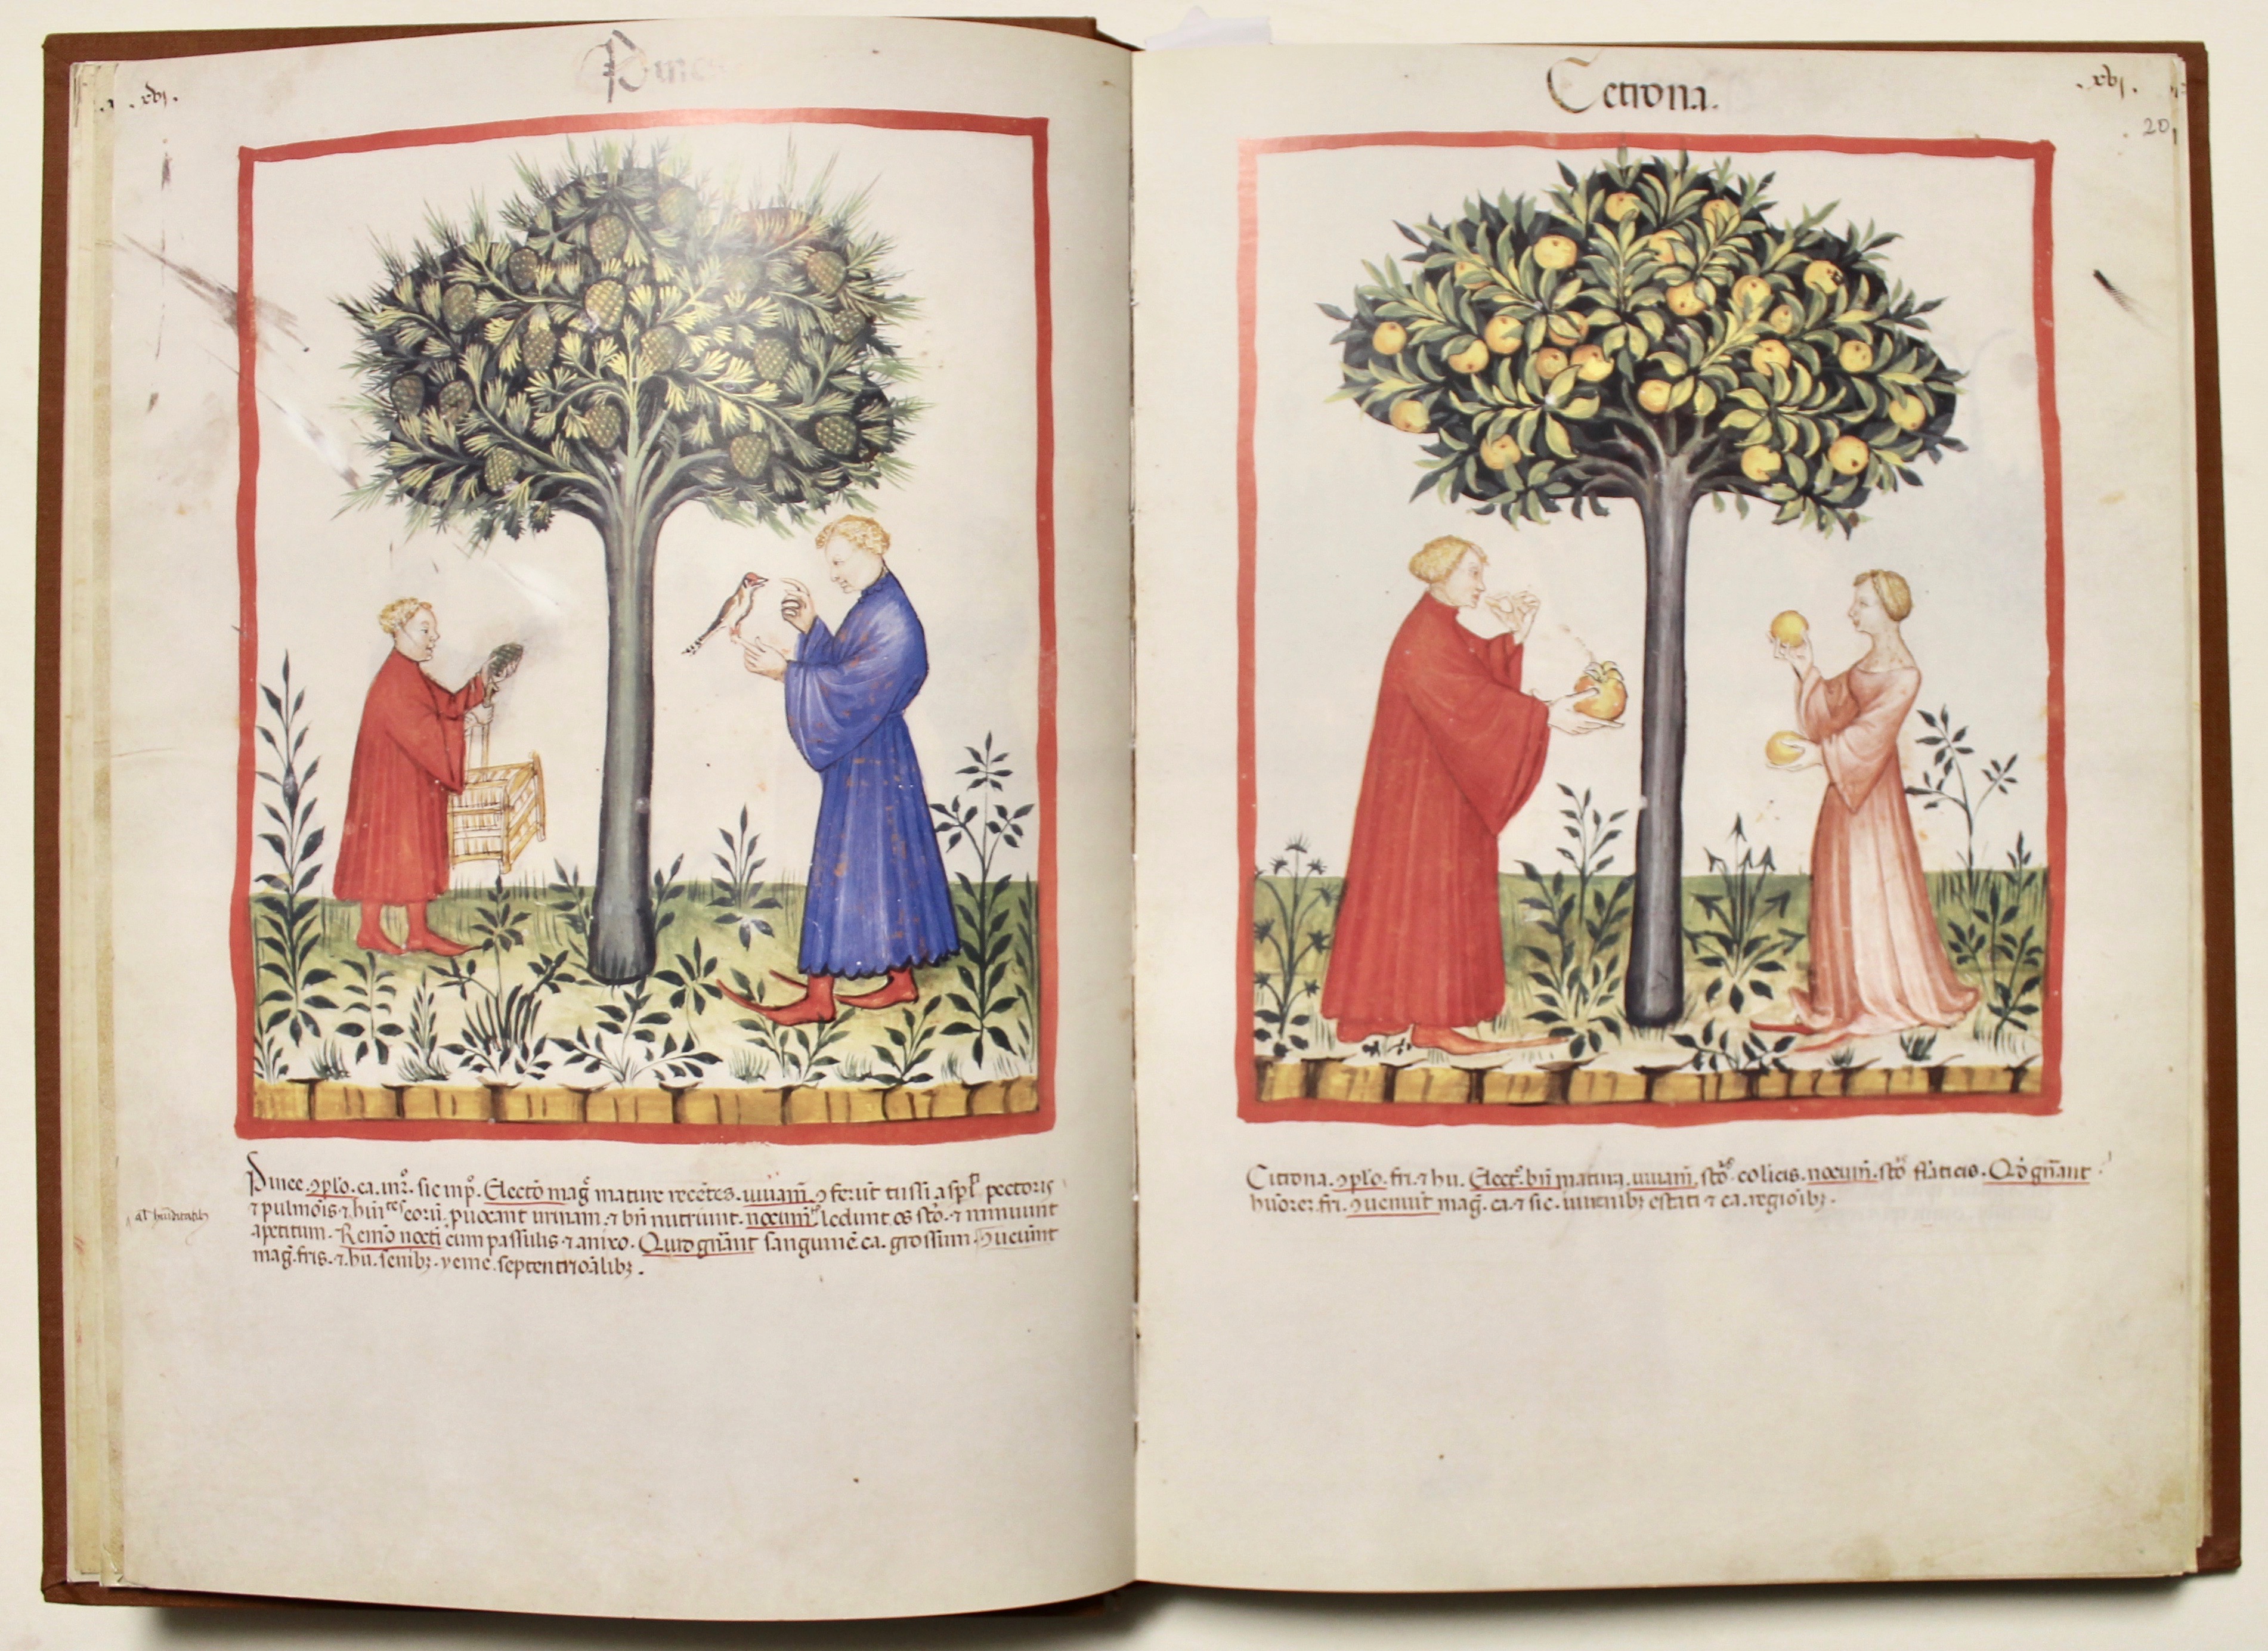 .xvj.
Pinee
Pinee .ɔplo. ca. in 2º. sic. in pº. Electō mag̃ mature recētes. iuuam̃ ɔferūt tussi aspꝉ pectoris
⁊ pulmōis ⁊ hui eoꝝ. puocant urinam. ⁊ bñ nutriunt. nocum̃ ledunt os stō. ⁊ minuunt
apetitum. Remō nocti cum passulis ⁊ Quid gñant sanguinē ca. grossum. ɔueiunt
mag̃. fris. ⁊ hu. senibꝫ. yeme. septentrioālibꝫ.
Cetrona.
.xvj.
20
Citrona. ɔplo. fri. ⁊ hu. Elect̃º. bñ matura. iuuam̃. stō colicis. nocum̃. stō flãticis. Qd gñant
hūores fri. ɔueniūt mag̃. ca. ⁊ sic. iuuenibꝫ estati ⁊ ca. regiōibꝫ.